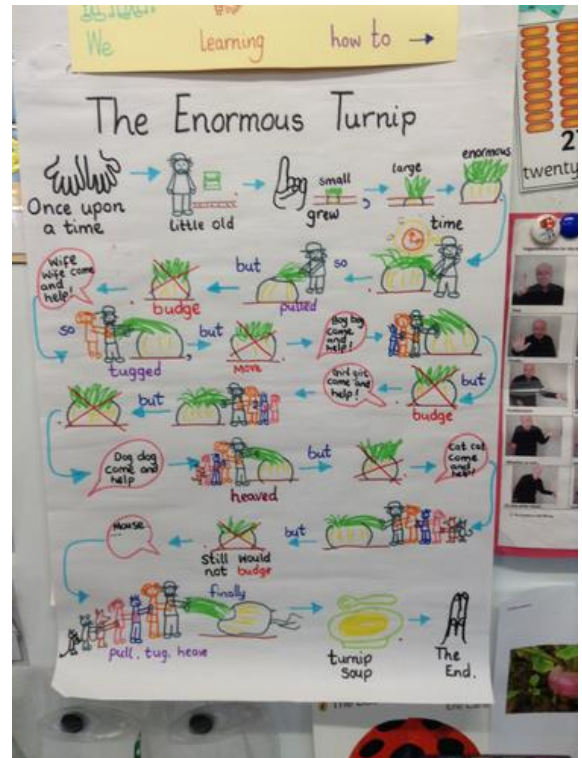 We learning how to →
The Enormous Turnip
Once upon
a time
little old
grew
small
,
large
enormous
time
so
pulled
but
budge
Wife
wife come
and
help!
so
tugged
,
but
move
Boy boy
come
and
help!
but
budge
Girl girl
come and
help!
but
Dog dog
come and
help
heaved
but
Cat cat
come
and
help!
but
still would
not budge
Mouse
...
finally
pull, tug, heave
turnip
soup
The
End.
2
twenty